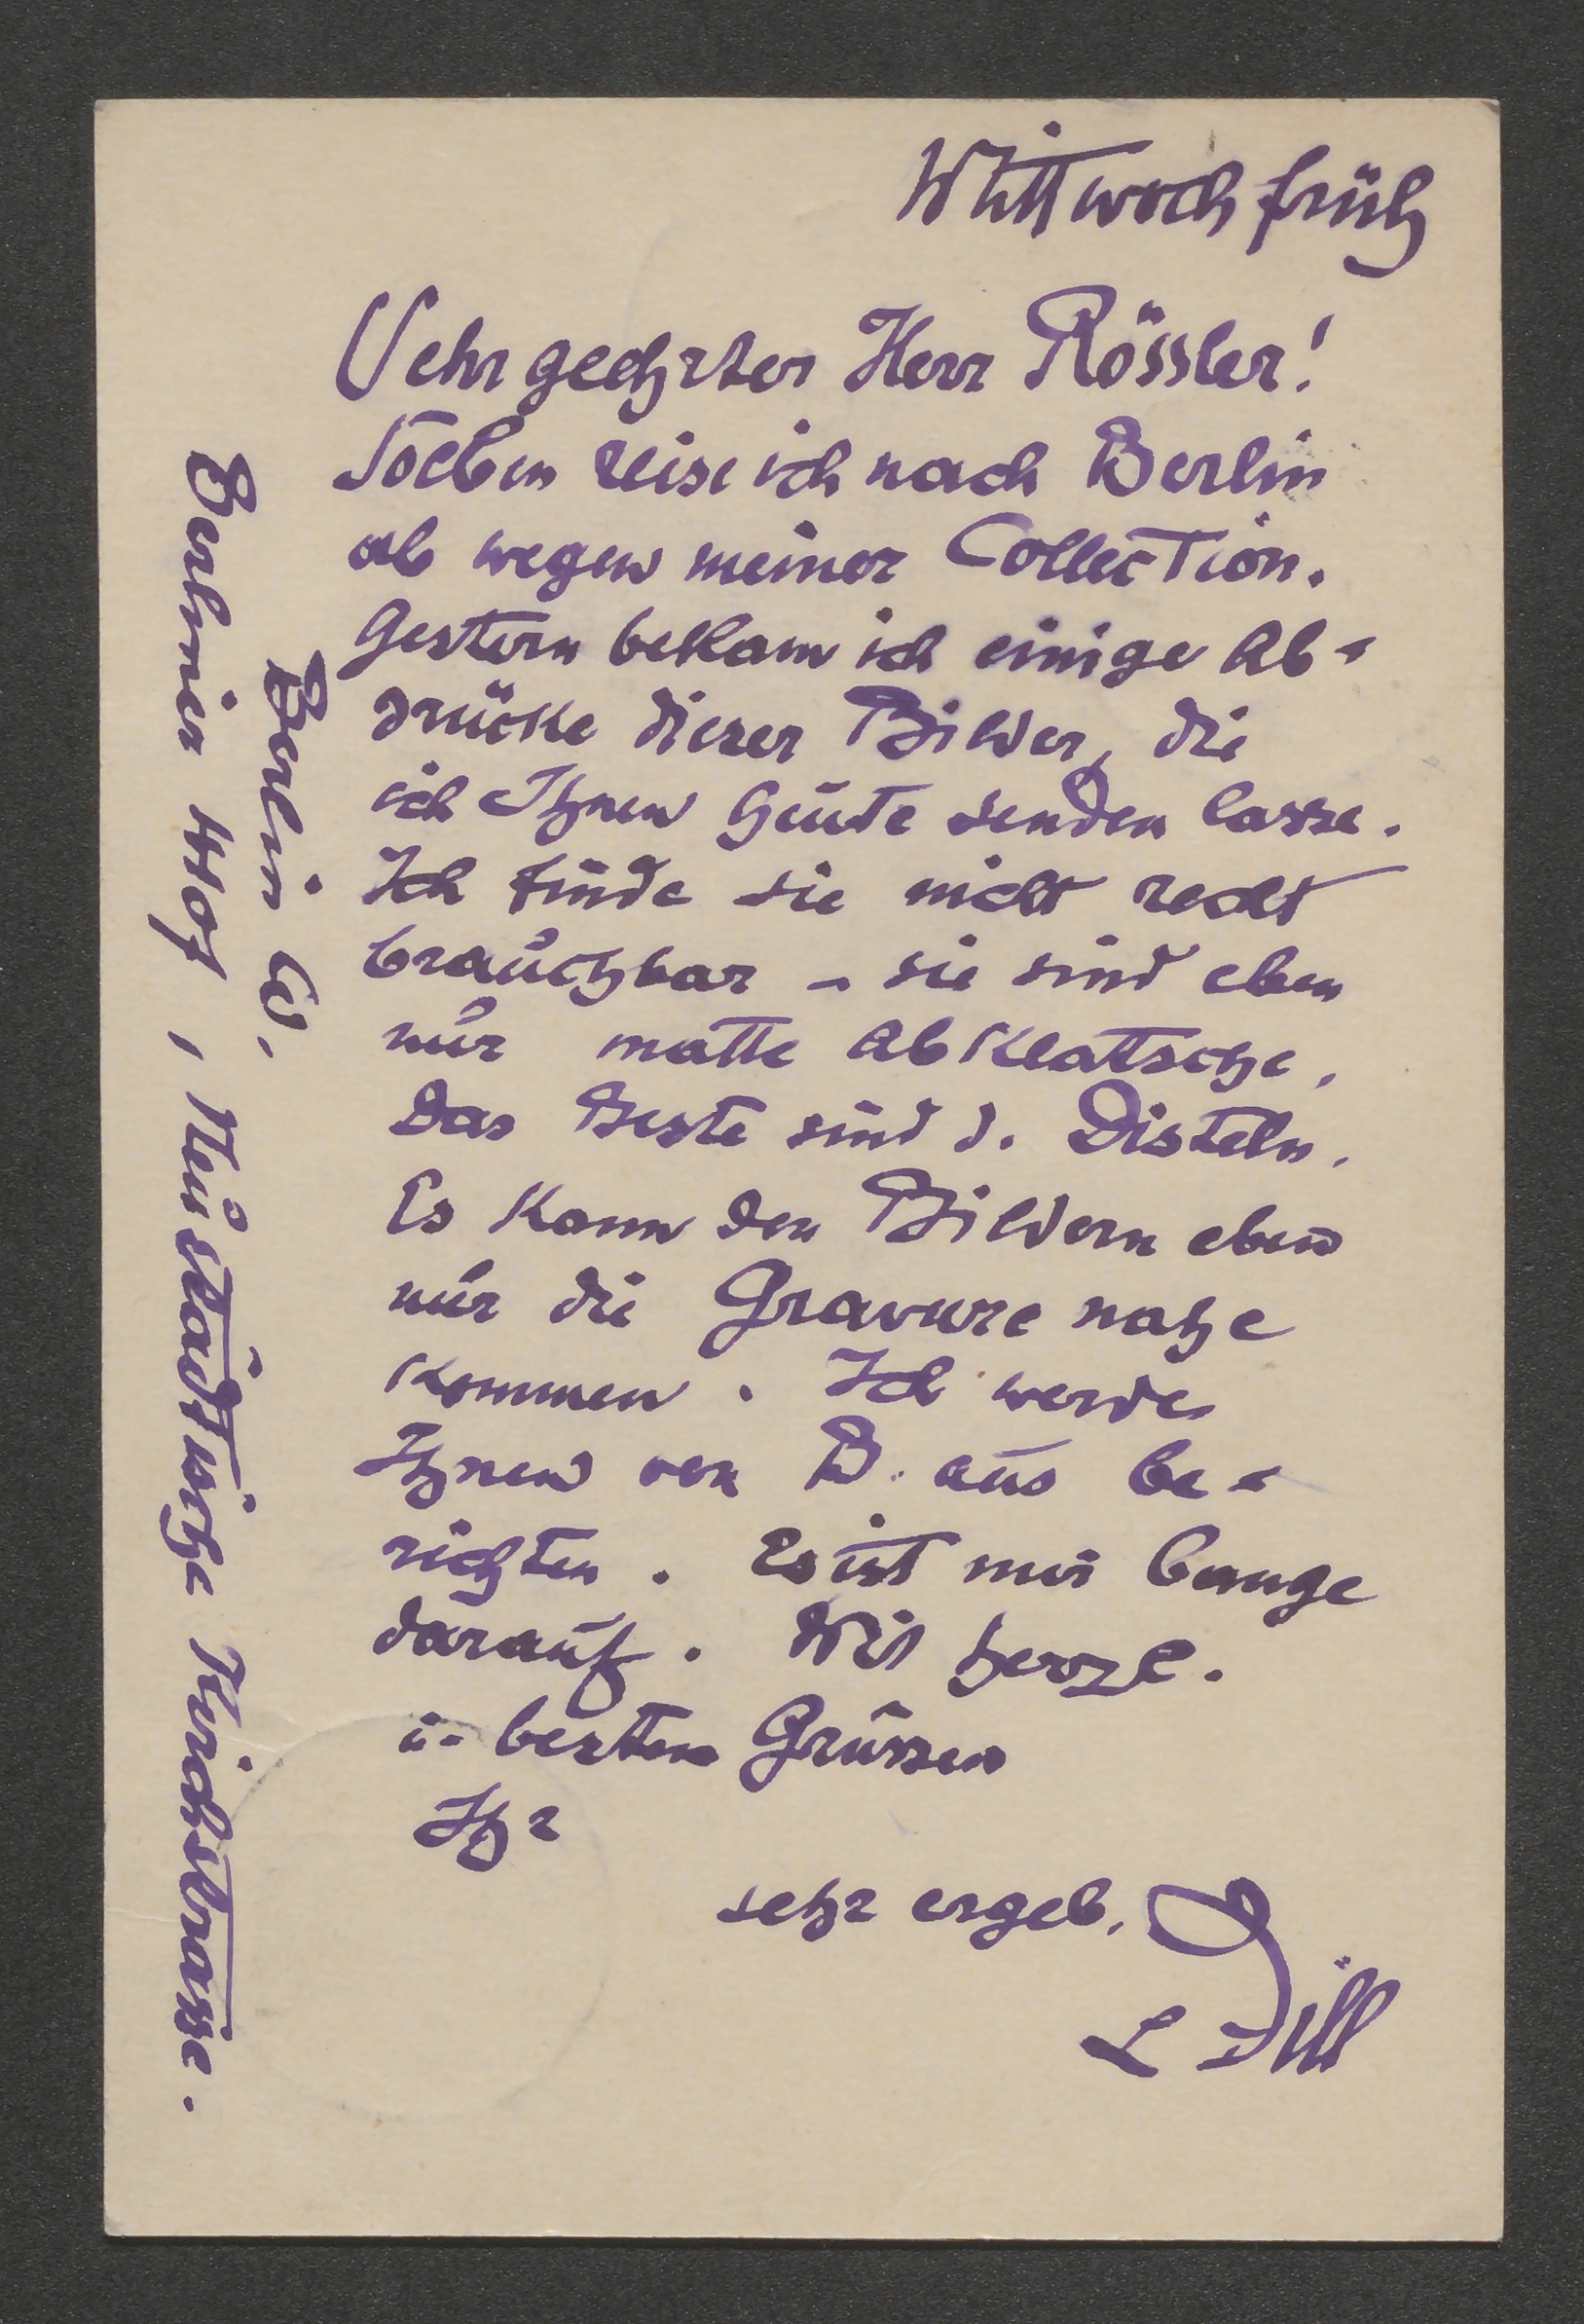 Mittwoch früh
Sehr geehrter Herr Rössler!
Soeben reise ich nach Berlin
ab wegen meiner Collection.
Gestern bekam ich einige Ab-
drücke dieser Bilder, die
ich Ihnen heute senden lasse.
Ich finde sie nicht recht
brauchbar - sie sind eben
nur matte Abklatsche.
Das Beste sind d. Disteln.
Es kann den Bildern eben
nur die Gravure nahe
kommen. Ich werde
Ihnen von B. aus be-
richten. Es ist mir bange
darauf. Mit herzl.
u. besten Grüssen
Ihr
sehr ergeb.
L Dill
Berlin W.
Berliner Hof, Neustädtische Kirchstrasse.